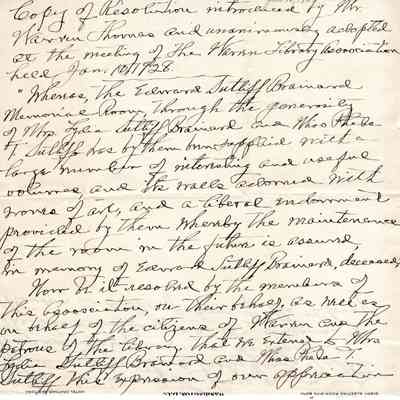 Copy of Resolution introduced by Mr.
Warren Thomas and unanimously adopted
at the meeting of the Warren Library Association
held Jan. 10, 1928.
"Whereas, the Edward Sutliff Brainard
Memorial Room through the generosity
of Mrs. Lydia Sutliff Brainard and Miss Phebe
T. Sutliff has by them been supplied with a
large number of interesting and useful
volumes and the walls adorned with
works of art, and a liberal endowment
provided by them whereby the maintenance
of the room in the future is assured,
in memory of Edward Sutliff Brainard, deceased,
Now be it resolved by the members of
this Association, on their behalf, as well as
on behalf of the citizens of Warren and the
patrons of the library, that we extend to Mrs
Lydia Sutliff Brainard and Miss Phebe T.
Sutliff this expression of our appreciation